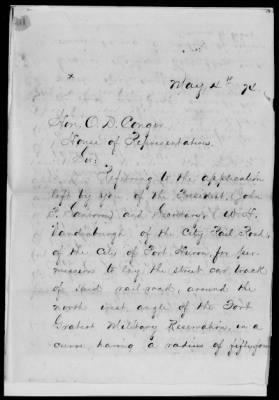 May 4th 74
Hon: O. D. Conger
House of Representatives
Sir:
Referring to the application
left by you of the President, (John
P. Sanborn) and Secretary, (W. H.
Vandenburgh) of the City Rail Road,
of the City of Port Huron, for per-
mission to lay the street car track
of said rail-road, around the
north west angle of the Fort
Gratiot Military Reservation, in a
curve, having a radius of fifty-four